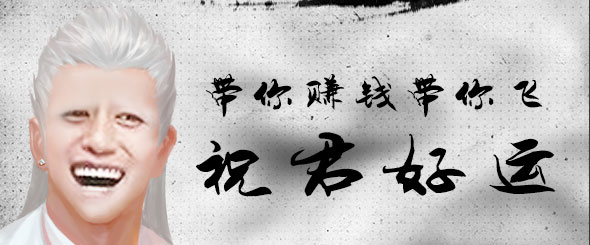 带你赚钱带你飞
祝君好运